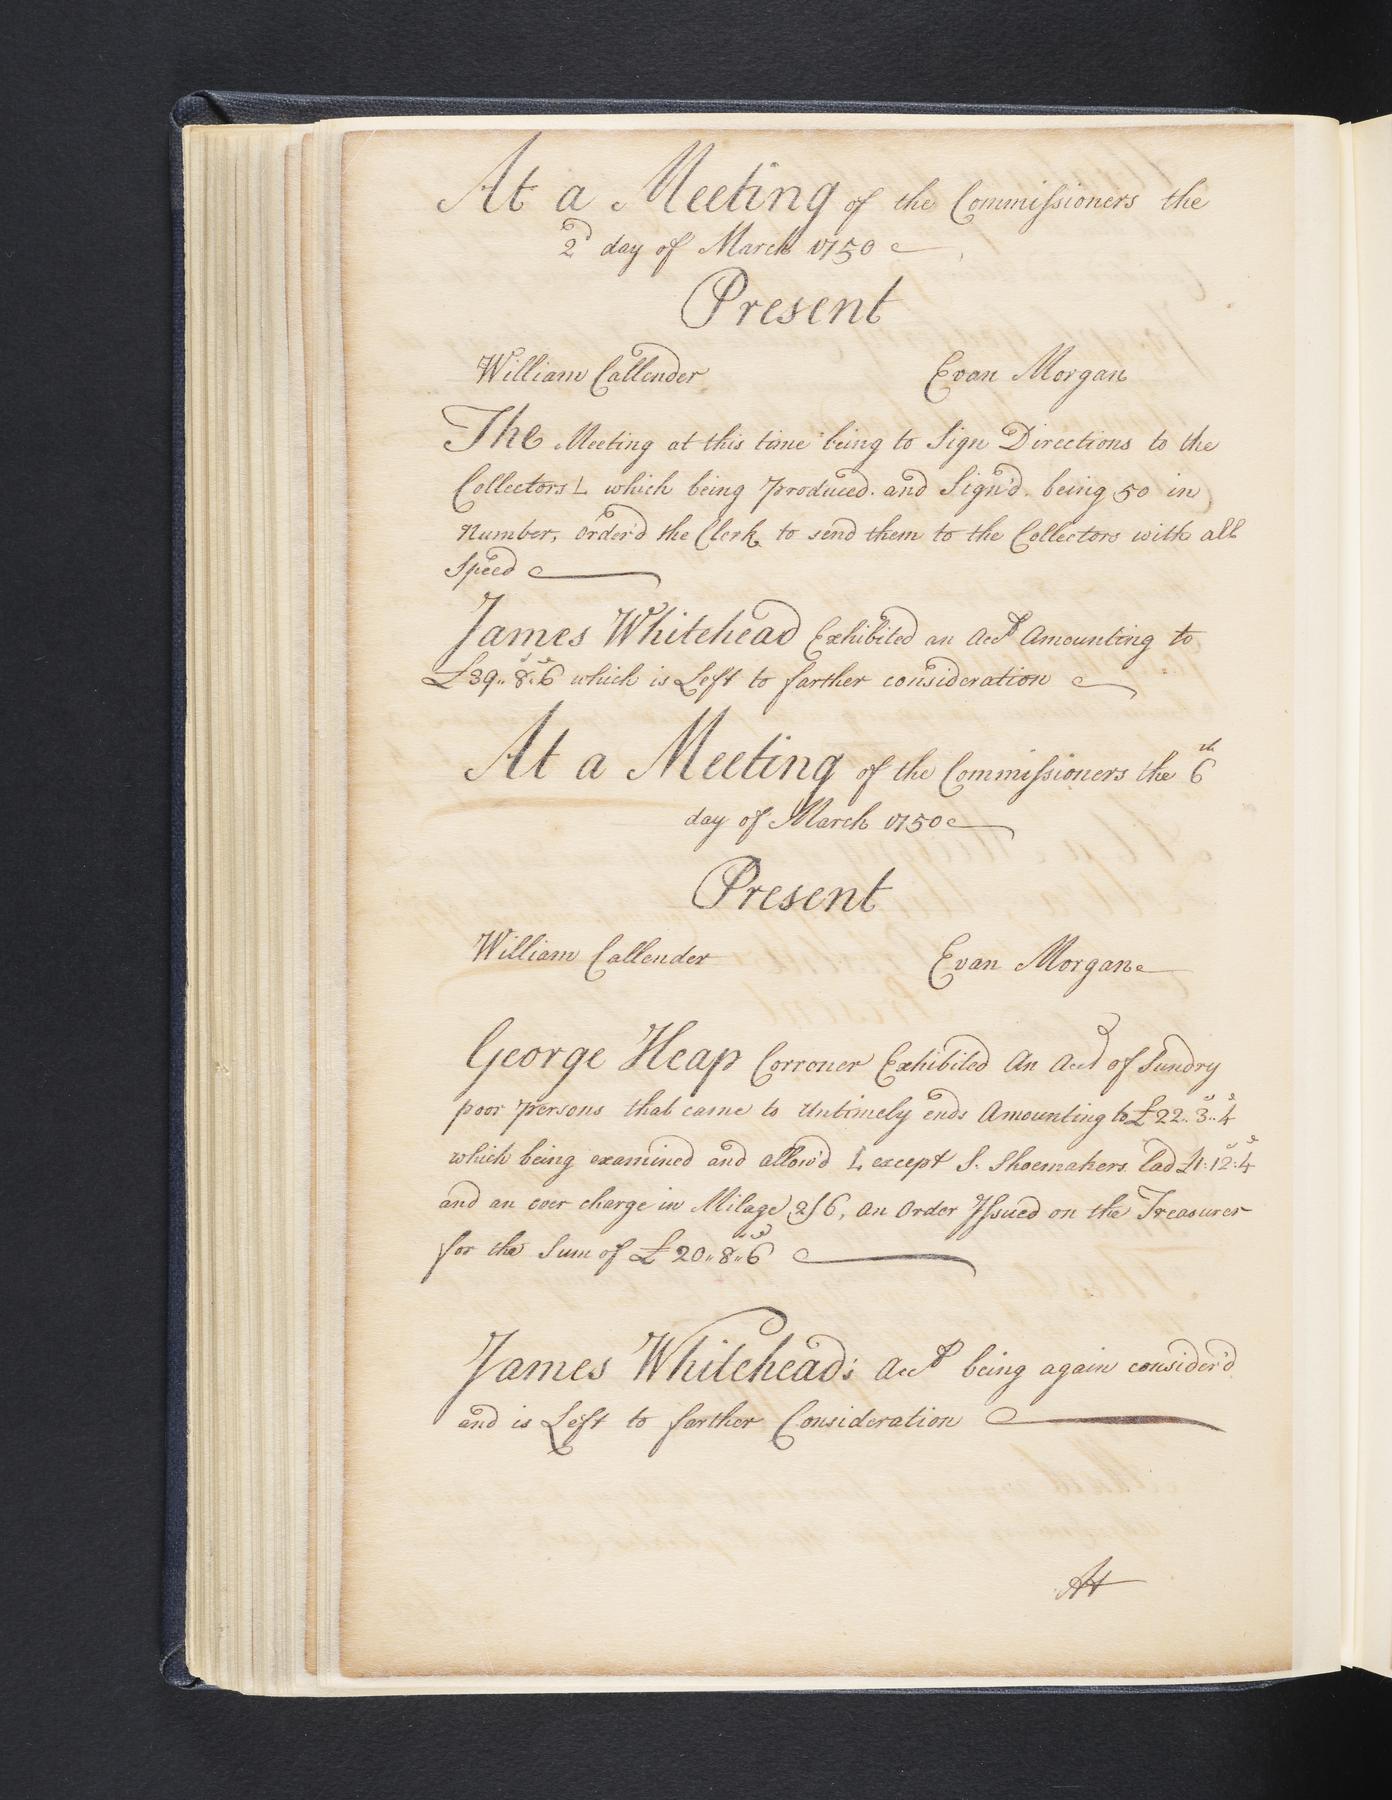 At a Meeting of the Commissioners the
2d day of March 1750
Present
William Callender Evan Morgan
The Meeting at this time being to Sign Directions to the
Collectors L which being produced. and Sign'd. being 50 in
Number, order'd the Clerk to send them to the Collectors with all
Speed
James Whitehead Exhibited an Acct Amounting to
£39..8..6 which is Left to farther consideration
At a Meeting of the Commissioners the 6th
day of March 1750
Present
William Callender Evan Morgan
George Heap Corroner Exhibited An Acct of Sundry
poor persons that came to Untimely ends Amounting to £22..3..4
which being examined and allow'd L except S. Shoemakers Lad £1:12:4
and an over charge in Milage 2/6, An Order Issued on the Treasurer
for the Sum of £20..8..6
James Whitehead's Acct being again consider'd
and is Left to farther Consideration
At